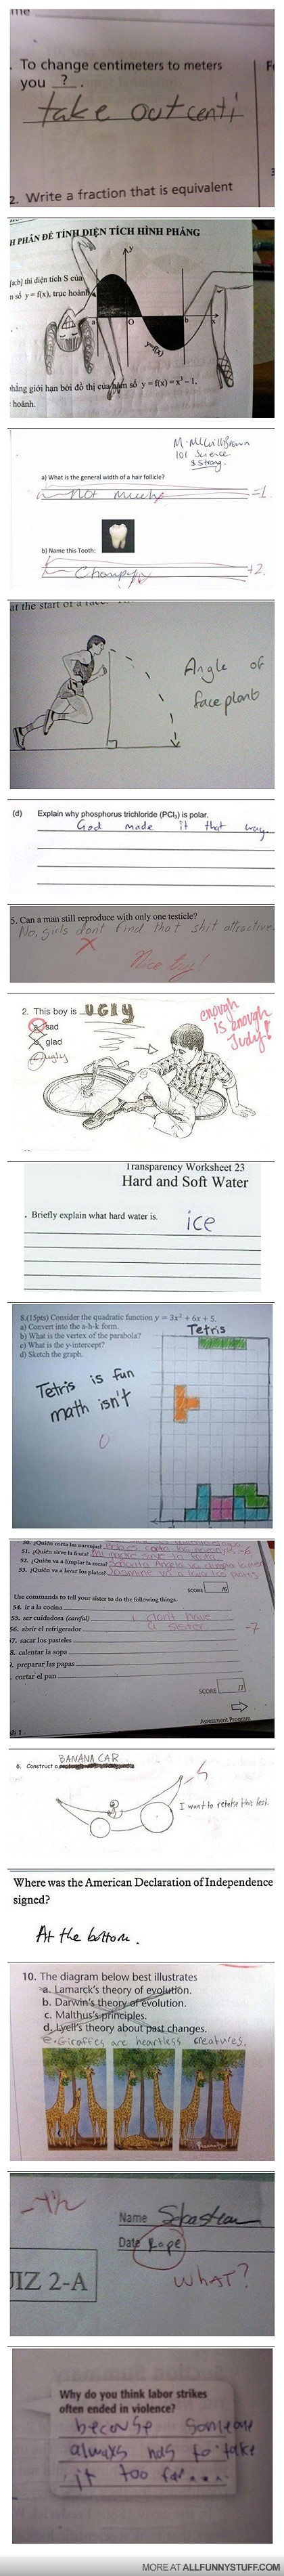 me
. To change centimeters to meters
you ? .
take out centi
2. Write a fraction that is equivalent
H PHÂN ĐỂ TÍNH DIỆN TÍCH HÌNH PHẲNG
[a;b] thì diện tích S của
m số y = f(x), trục hoành
y
a
O
b
x
y=f(x)
phẳng giới hạn bởi đồ thị của hàm số y = f(x) = x³ - 1,
hoành.
101 Science
& Strong.
a) What is the general width of a hair follicle?
not much
=1
b) Name this Tooth:
Chompy
+2
at the start of a race.
Angle of
face plant
(d) Explain why phosphorus trichloride (PCl₃) is polar.
God made it that way.
5. Can a man still reproduce with only one testicle?
No, girls don't find that shit attractive
Nice try!
2. This boy is UGLY
a. sad
b. glad
c. ugly
enough
is enough
Judy!
Transparency Worksheet 23
Hard and Soft Water
. Briefly explain what hard water is.
ice
8.(15pts) Consider the quadratic function y = 3x² + 6x + 5.
a) Convert into the a-h-k form.
b) What is the vertex of the parabola?
c) What is the y-intercept?
d) Sketch the graph.
Tetris
Tetris is fun
math isn't
0
50. ¿Quién corta las naranjas?
51. ¿Quién sirve la fruta?
52. ¿Quién va a limpiar la mesa?
53. ¿Quién va a lavar los platos?
SCORE
Use commands to tell your sister to do the following things.
54. ir a la cocina
55. ser cuidadosa (careful)
i don't have
56. abrir el refrigerador
a sister
-7
57. sacar los pasteles
58. calentar la sopa
preparar las papas
cortar el pan
SCORE
Assessment Program
BANANA CAR
6. Construct a
I want to retake this test.
Where was the American Declaration of Independence
signed?
At the bottom.
10. The diagram below best illustrates
a. Lamarck's theory of evolution.
b. Darwin's theory of evolution.
c. Malthus's principles.
d. Lyell's theory about past changes.
e. Giraffes are heartless creatures.
-1½
Name Sebastian
Date Rape
UIZ 2-A
WHAT?
Why do you think labor strikes
often ended in violence?
because someone
always has to take
it too far....
MORE AT ALLFUNNYSTUFF.COM